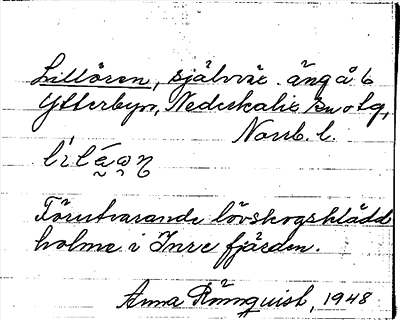 Lillören, självvär. äng å 6
Ytterbyn, Nederkalix sn o tg,
Norrb. l.
Förutvarande lövskogsklädd
holme i Inre fjärden.
Anna Rönnquist, 1948